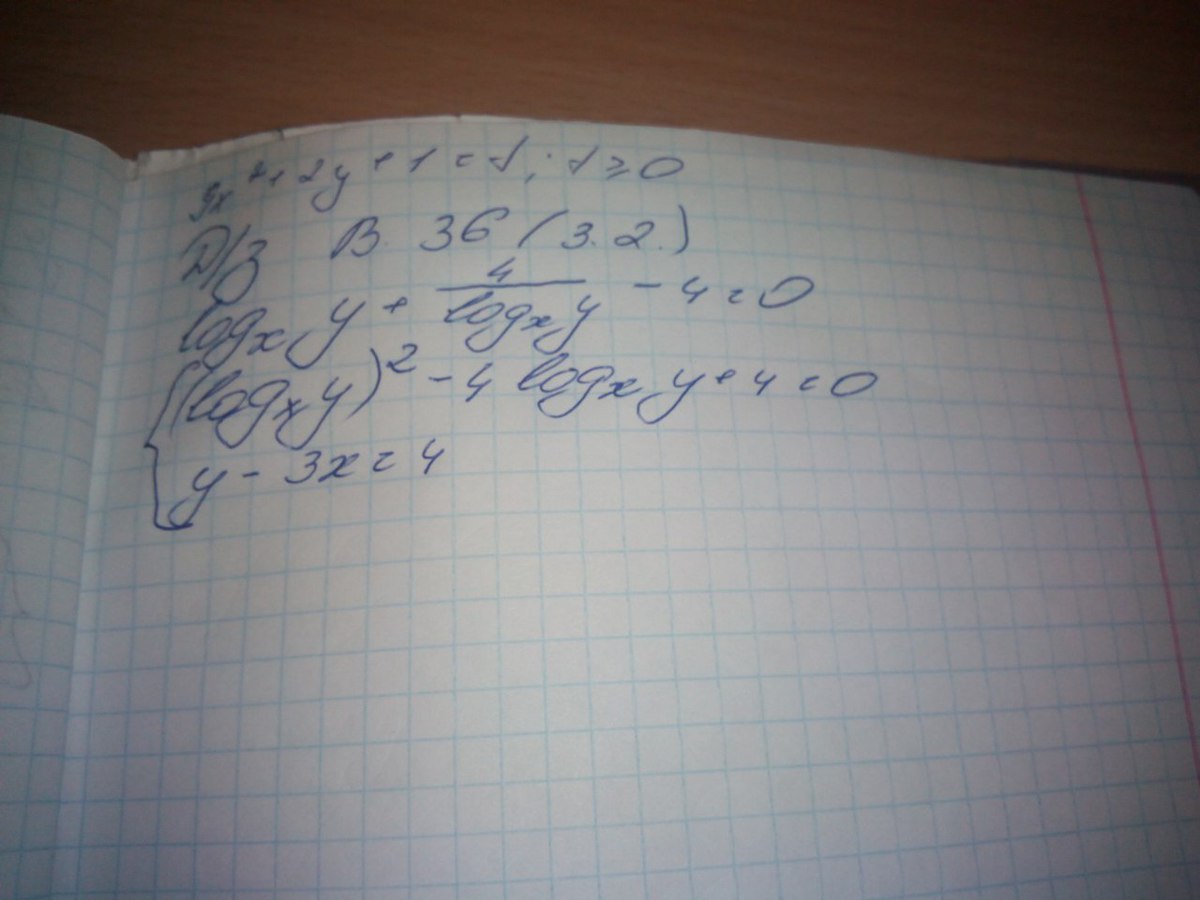 9x² + 2y + 1 = t; t ≥ 0
Д/з В. 36 (3.2.)
log_x y + 4/(log_x y) - 4 = 0
{ (log_x y)² - 4 log_x y + 4 = 0
y - 3x = 4